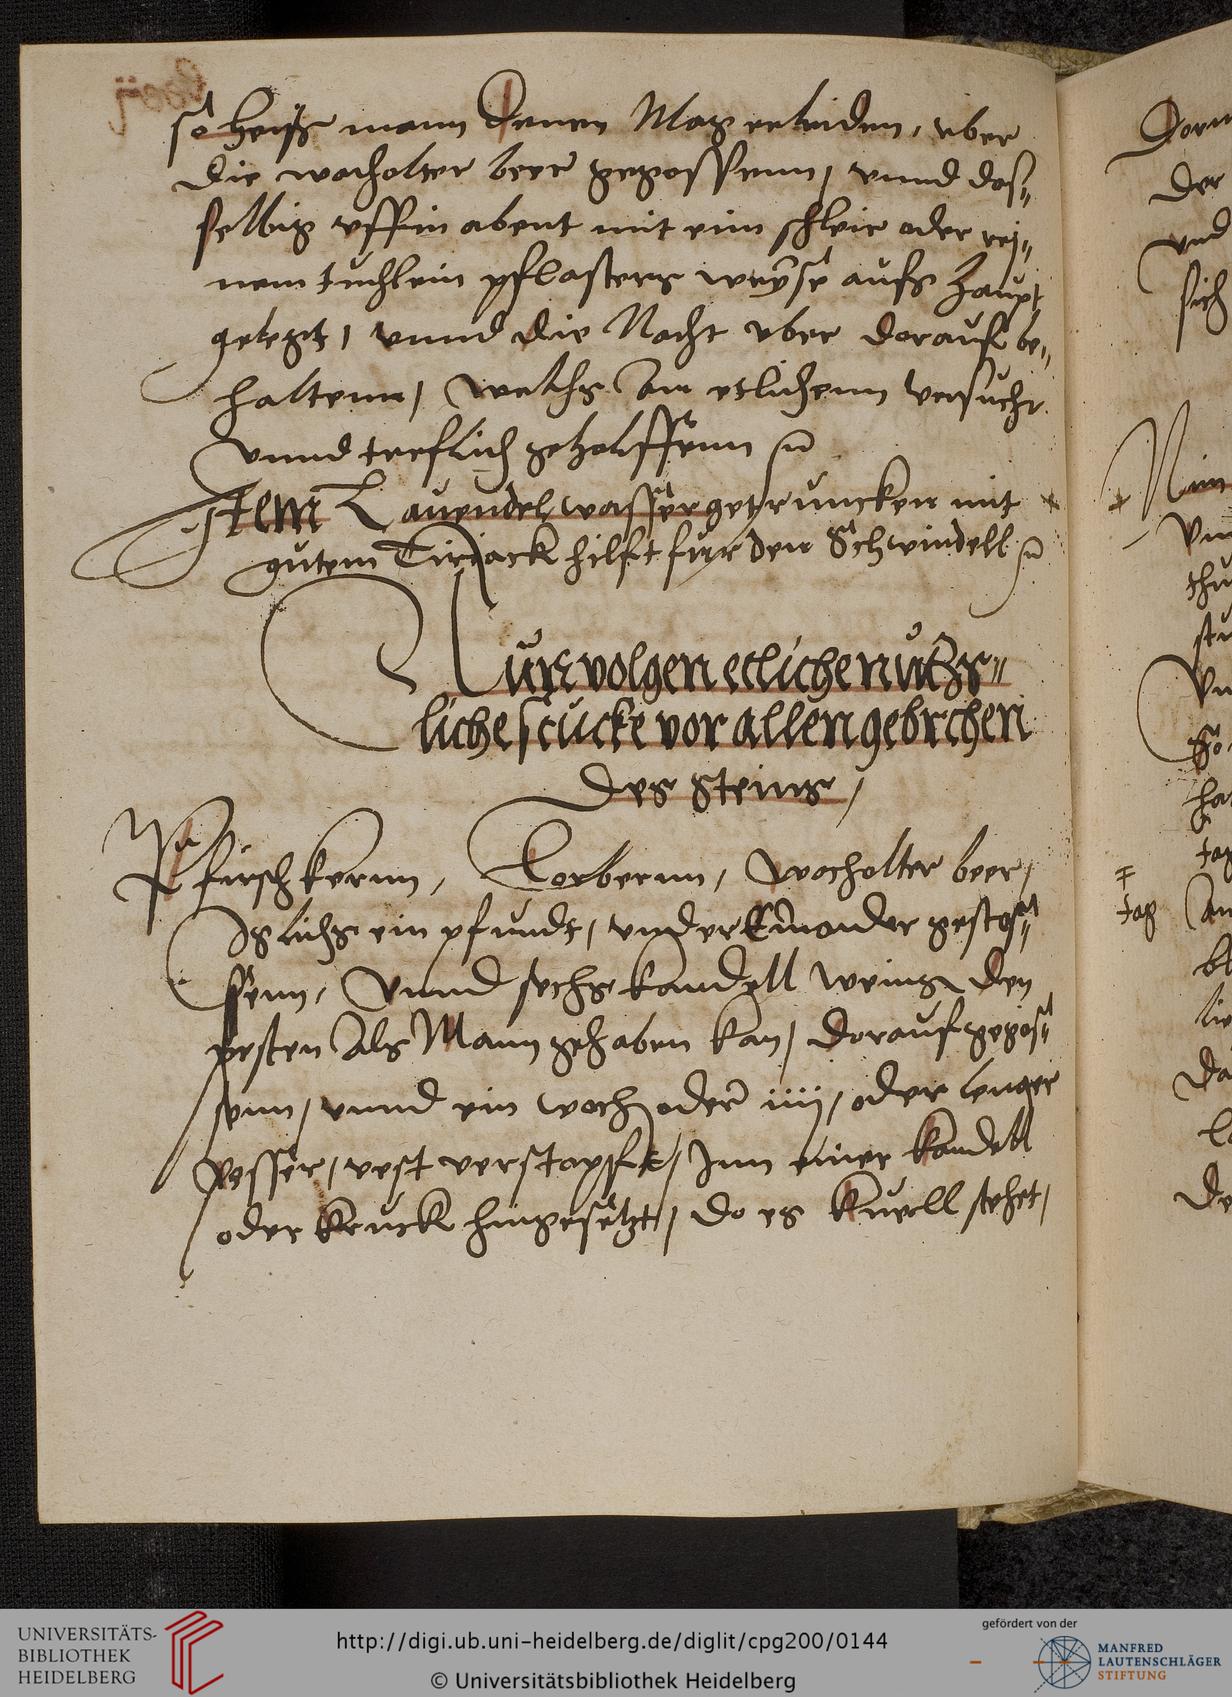 so heyß mann denen Mag erleiden, vber
die wacholter beer gegossenn, vnnd das=
selbig vffin abent mit eim schleir oder rei=
nem tuchlein pflasters weyse aufs Haupt
gelegt, vnnd die Nacht vber darauf be=
haltenn, welchs an etlichenn versucht
vnnd treflich geholffenn
Item Lauendel wasser getruncken mit
gutem Tiriack hilft fur den Schwindell
Nun volgen etliche nutzs=
liche stucke vor allen gebrchen
des Steins,
Pfirschkernn, Lorbernn, Wacholter beer,
Iglichs ein pfundt, vnder Einander gestos=
senn, Vnnd sechs kandell weins den
pesten Als Mann gehaben kan, darauf gegos=
senn, vnnd ein woch oder iiij, oder lenger
pesser, vest verstopfft, Inn einer kandell
oder kruck hingesetzt, do es kuell stehet,
Dorn
der
vnd
sich
Nim
Vn
thu
stu
Vn
So
ha
tag
tag An
bl
lie
Da
l
De
UNIVERSITÄTS-
BIBLIOTHEK
HEIDELBERG
http://digi.ub.uni-heidelberg.de/diglit/cpg200/0144
© Universitätsbibliothek Heidelberg
gefördert von der
MANFRED
LAUTENSCHLÄGER
STIFTUNG